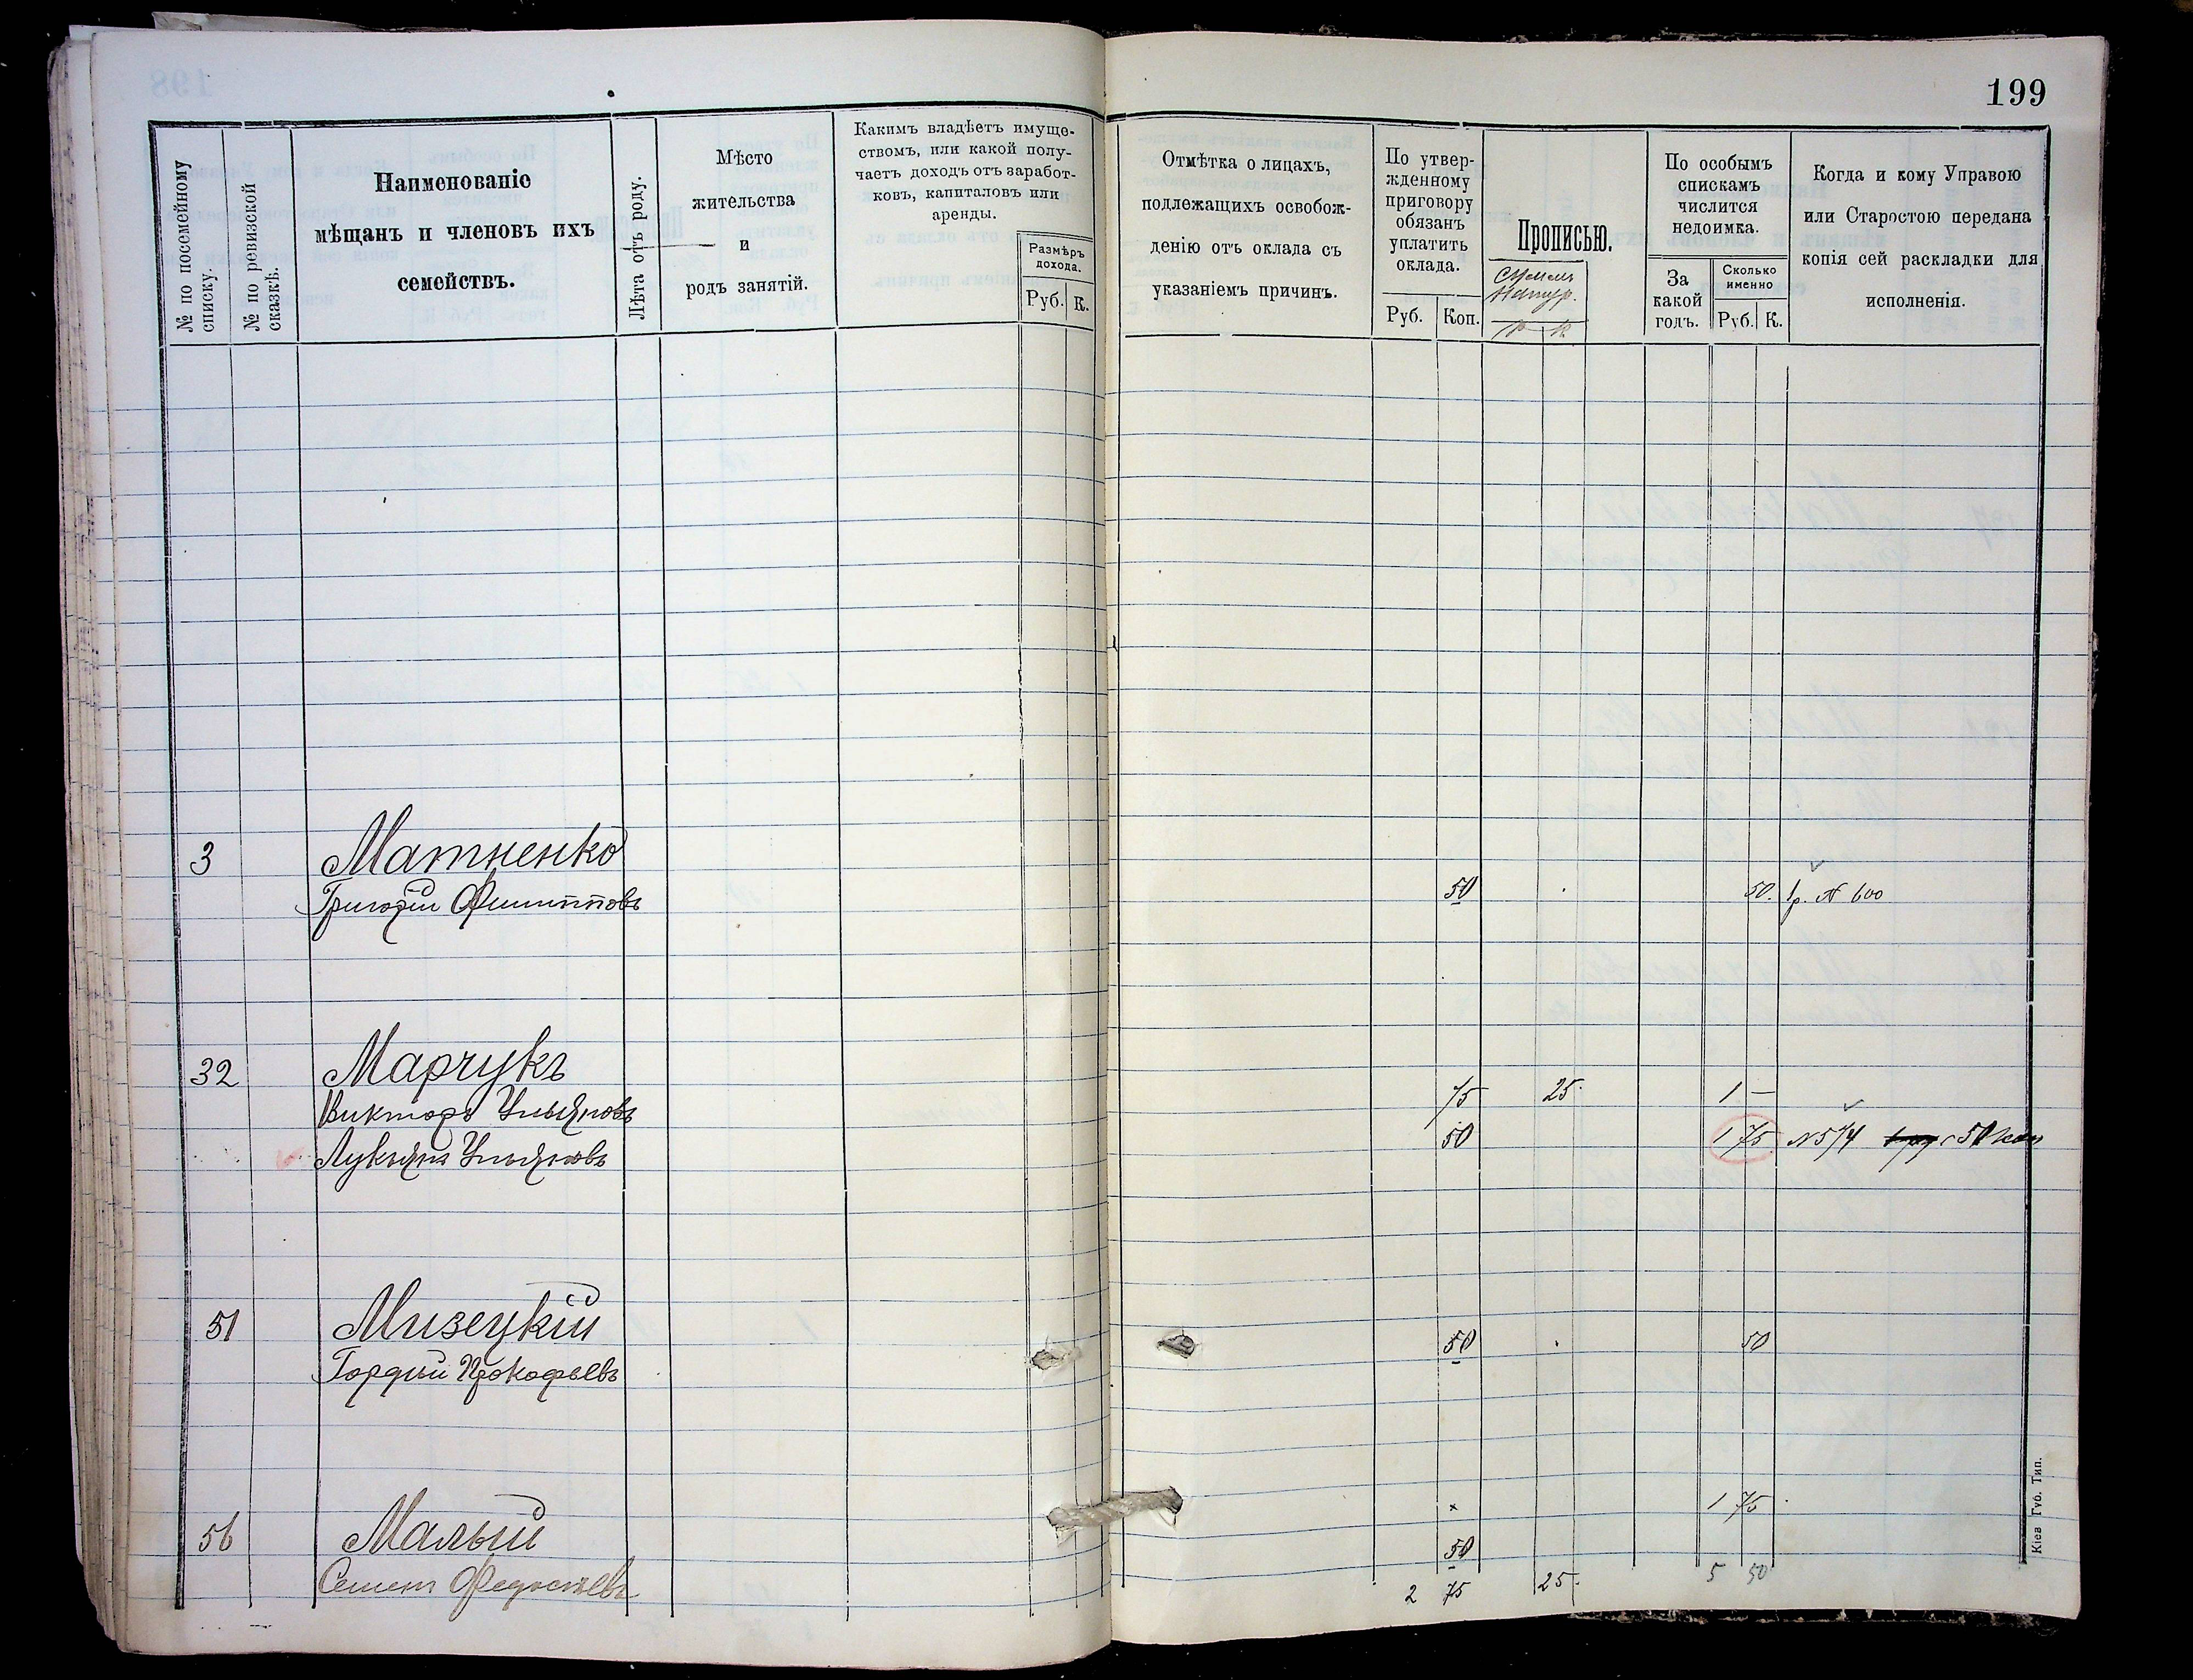 199
№ по посемейному списку.
№ по ревизской сказкѣ.
Наименованіе
мѣщанъ и членовъ ихъ
семействъ.
Лѣта отъ роду.
Мѣсто
жительства
и
родъ занятій.
Какимъ владѣетъ имуще-
ствомъ, или какой полу-
чаетъ доходъ отъ заработ-
ковъ, капиталовъ или
аренды.
Размѣръ
дохода.
Руб. К.
Отмѣтка о лицахъ,
подлежащихъ освобож-
денію отъ оклада съ
указаніемъ причинъ.
По утвер-
жденному
приговору
обязанъ
уплатить
оклада.
Руб. Коп.
Прописью.
Р К
По особымъ
спискамъ
числится
недоимка.
За
какой
годъ.
Сколько
именно
Руб. К.
Когда и кому Управою
или Старостою передана
копія сей раскладки для
исполненія.
3 Матненко
Григорій Филипповъ 50 50. 1р. № 600
32 Марчукъ
Викторъ Ульяновъ 75 25 1 —
Лукьянъ Ульяновъ 50 1 75 №574 50 коп
51 Мизецкій
Гордій Прокофьевъ 50 50
56 Малый 1 75
Семенъ Федосѣевъ 50
2 75 25 5 50
Кіев Губ. Тип.